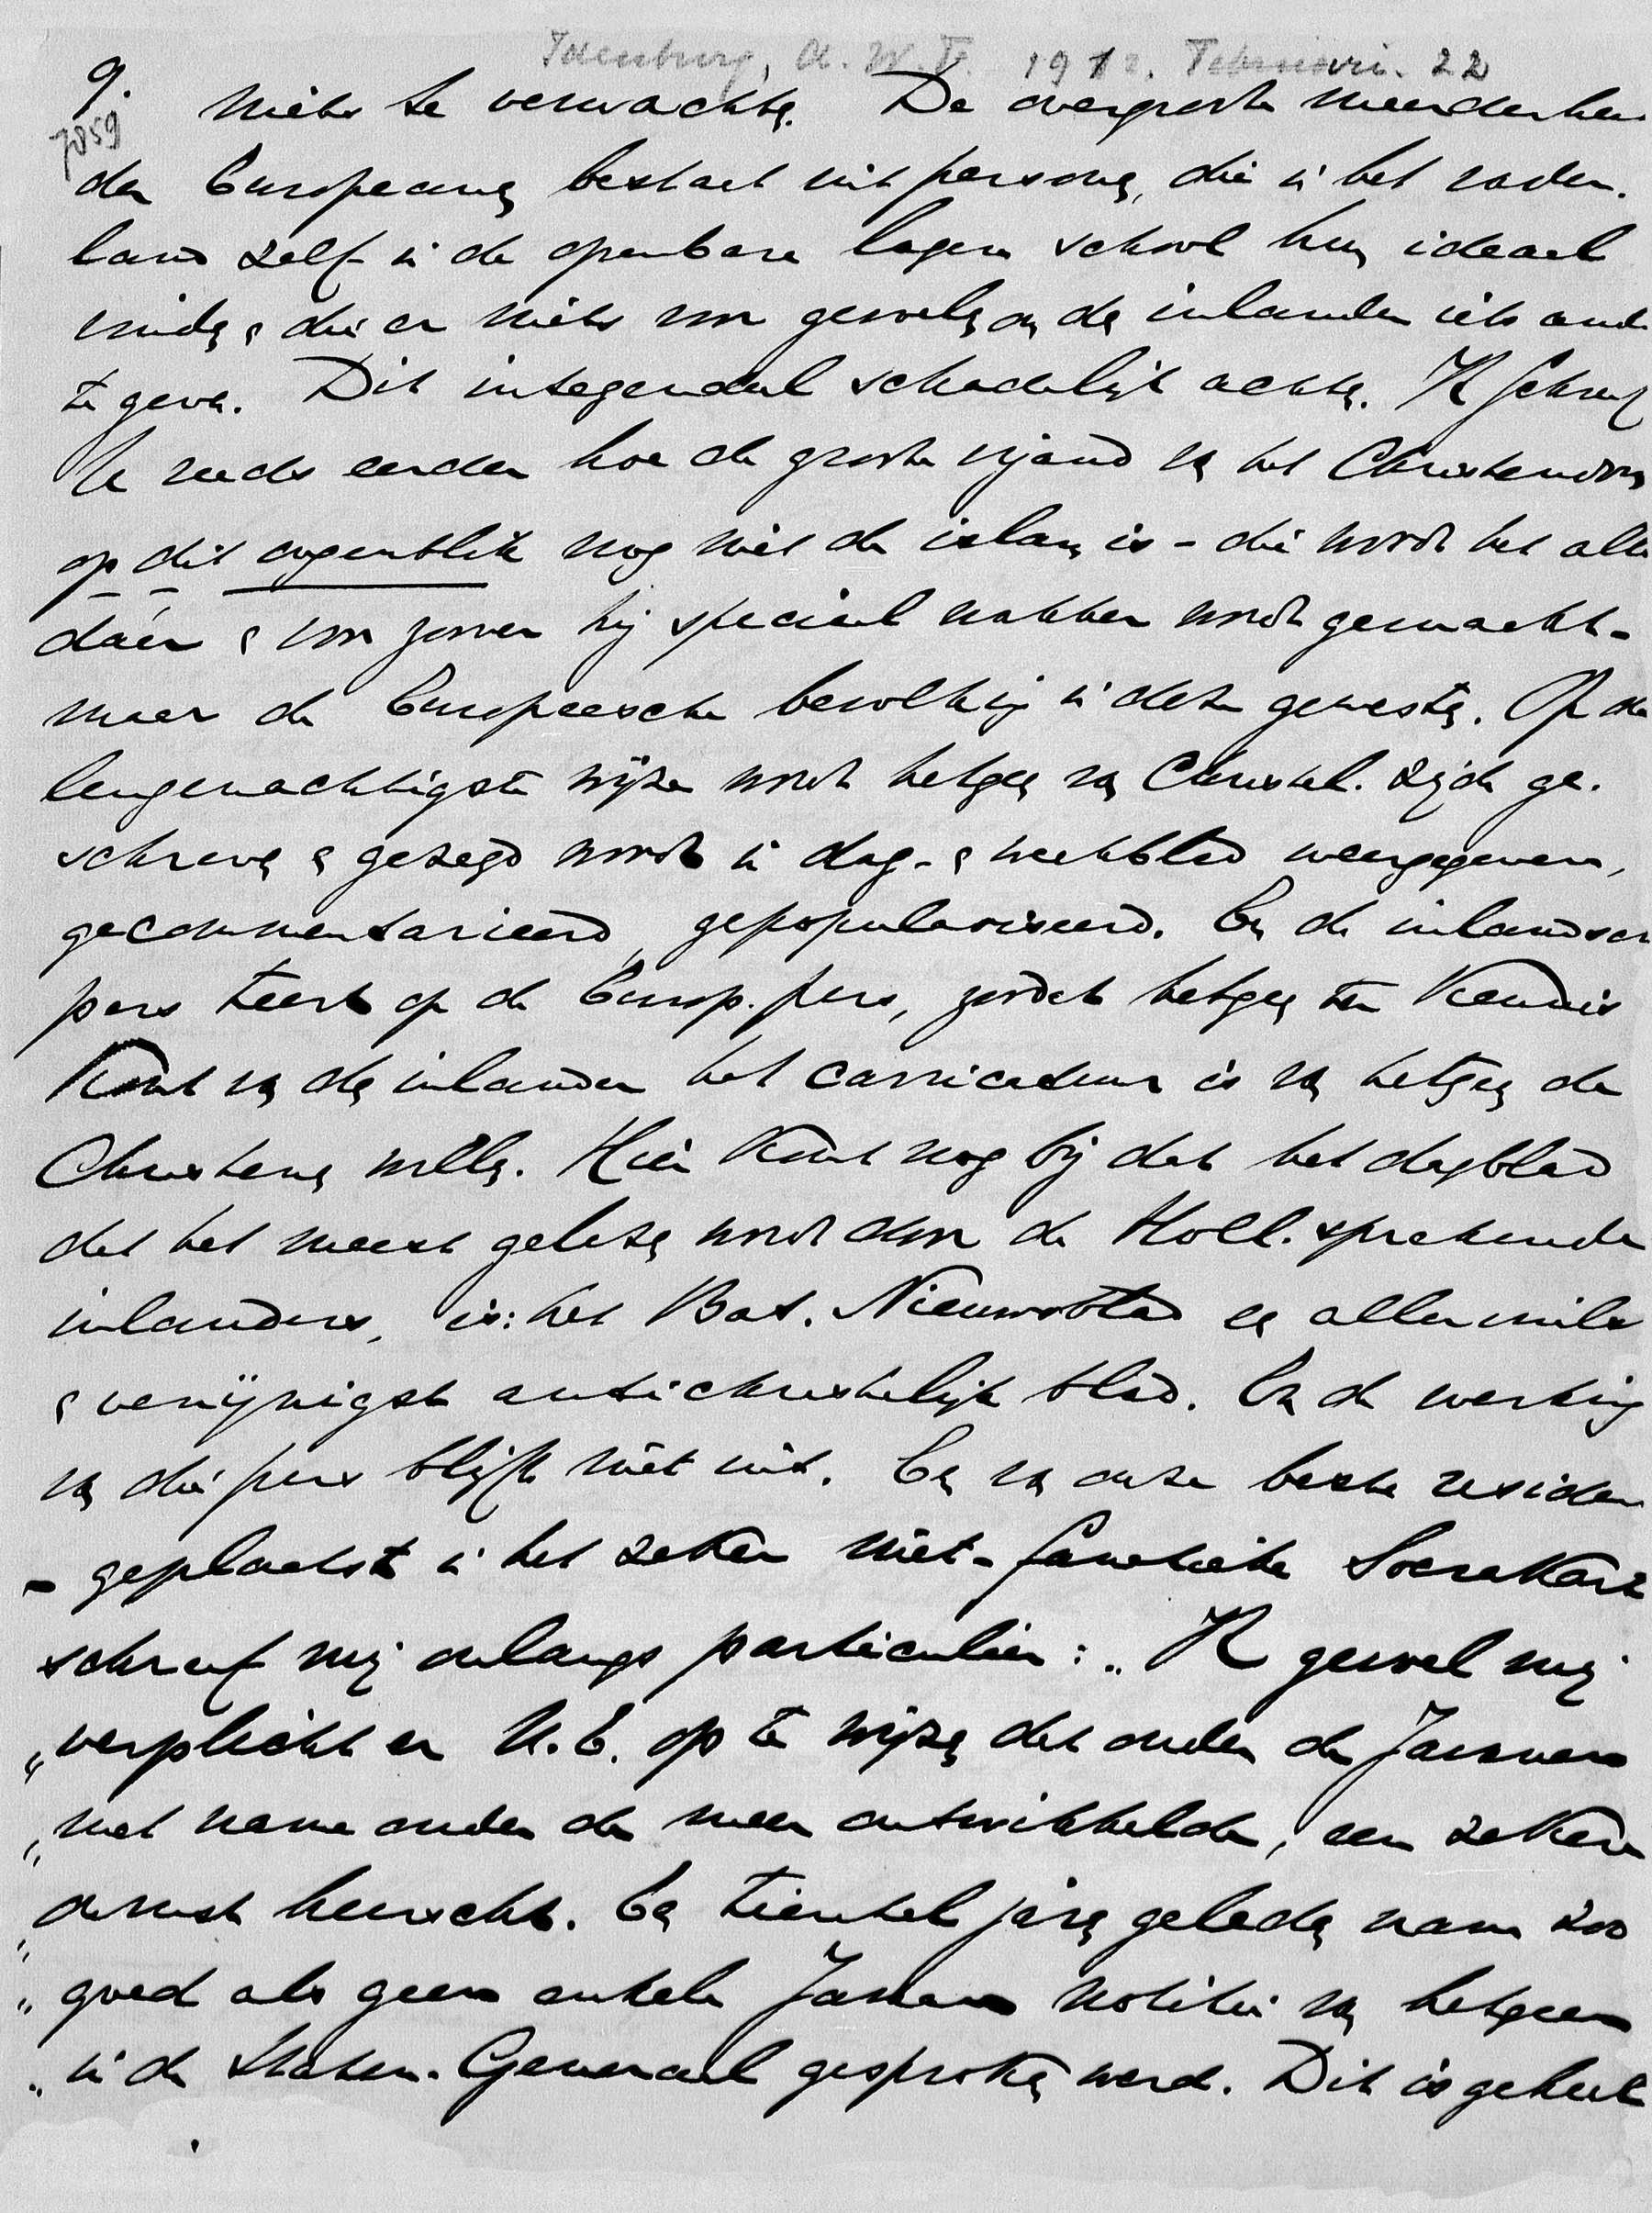 Idenburg, A.W.F. 1912. Februari. 22
9.
7859
niets te verwachten. De overgroote meerderhei
der Europeanen bestaat uit personen, die in het vader-
land zelf in de openbare lagere school hun ideaal
vinden & die er niets voor gevoelen om den inlander iets ande
te geven. Dit integendeel schadelijk achten. Ik schreef
U reeds eerder hoe de groote vijand van het Christendom
op dit oogenblik nog niet de islam is - die wordt het alle
dáár & voor zoover hij speciaal wakker wordt gemaakt -
maar de Europeesche bevolking in deze gewesten. Op de
leugenachtigste wijze wordt hetgeen van Christel. zijde ge-
schreven & gezegd wordt in dag- & weekblad weergegeven,
gecommentarieerd, gepopulariseerd. En de inlandsch
pers teert op de Europ. pers, zoodat hetgeen ter kennis
komt van den inlander het carricatuur is van hetgeen de
Christenen willen. Hier komt nog bij dat het dagblad
dat het meest gelezen wordt door de Holl. sprekende
inlanders, is: het Bat. Nieuwsblad een allervuilst
& venijnigst antichristelijk blad. En de werking
van die pers blijft niet uit. Een van onze beste residen
- geplaatst in het zeker niet-fanatieke Soerakarta
schreef mij onlangs particulier: "Ik gevoel mij
"verplicht er U.E. op te wijzen dat onder de Javanen
"met name onder de meer ontwikkelde, een zekere
"onrust heerscht. Een tiental jaren geleden nam zoo
"goed als geen enkele Javaan notitie van hetgeen
"in de Staten-Generaal gesproken werd. Dit is geheel